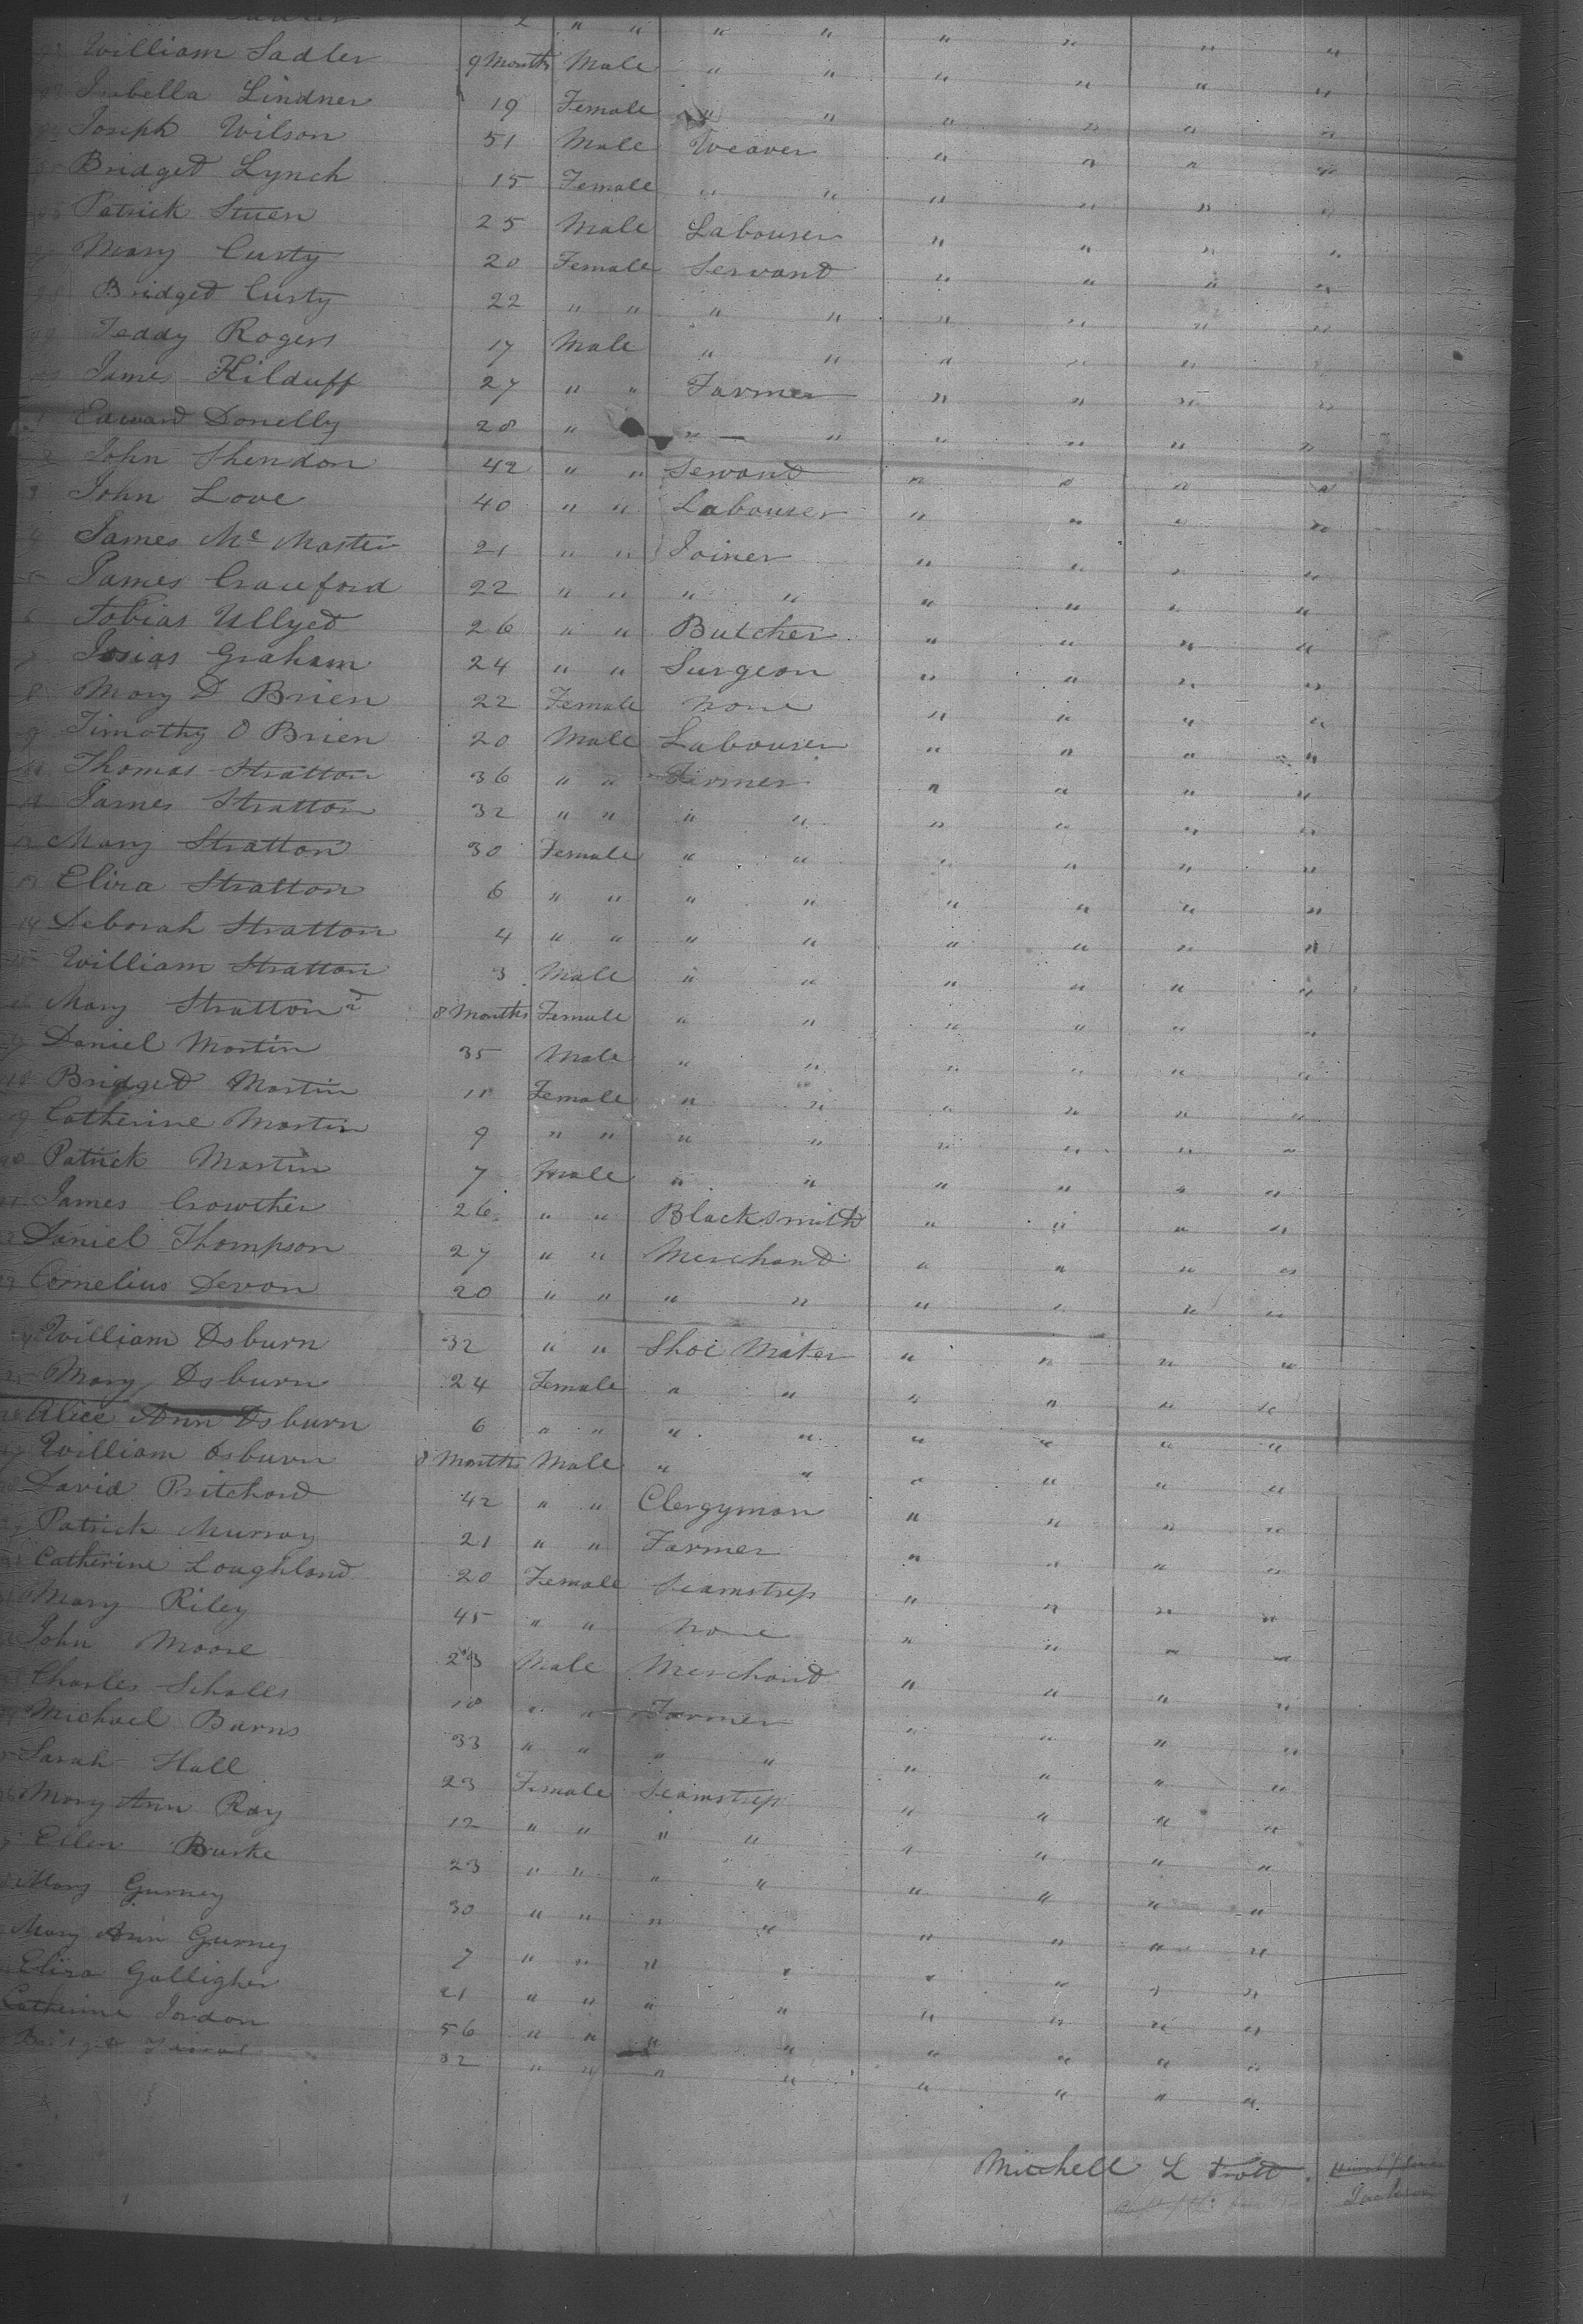 2 " " " " " " " "
William Sadler 9 Months Male " " " " " "
Isabella Lindner 19 Female " " " " " "
Joseph Wilson 51 Male Weaver " " " "
Bridged Lynch 15 Female " " " " " "
Patrick 25 Male Labourer " " " "
Mary Curty 20 Female Servand " " " "
Bridged Curty 22 " " " " " " " "
Teddy Rogers 17 Male " " " " " "
James Kilduff 27 " " Farmer " " " "
Edward Donelly 28 " " " " " " "
John Shendon 42 " " Servand " " " "
John Love 40 " " Labourer " " " "
James Mc Master 21 " " Joiner " " " "
James Crawford 22 " " " " " " " "
Tobias Ullyed 26 " " Butcher " " " "
Josias Graham 24 " " Surgeon " " " "
8 Mary O Brien 22 Female None " " " "
9 Timothy O Brien 20 Male Labourer " " " "
Thomas Stratton 36 " " Farmer " " " "
James Stratton 32 " " " " " " " "
Mary Stratton 30 Female " " " " " "
Eliza Stratton 6 " " " " " " " "
14 Deborah Stratton 4 " " " " " " " "
William Stratton 3 Male " " " " " "
Mary Stratton 8 Months Female " " " " " "
Daniel Martin 35 Male " " " " " "
Bridged Martin 11 Female " " " " " "
Catherine Martin 9 " " " " " " " "
Patrick Martin 7 Male " " " " " "
James Crowther 26 " " Blacksmith " " " "
Daniel Thompson 27 " " Merchand " " " "
Cornelius Devon 20 " " " " " " " "
William Osburn 32 " " Shoe Maker " " " "
Mary Osburn 24 Female " " " " " "
Alice Ann Osburn 6 " " " " " " " "
William Osburn 8 Months Male " " " " " "
David Pritchard 42 " " Clergyman " " " "
Patrick Murray 21 " " Farmer " " " "
Catherine Loughland 20 Female Seamstress " " " "
Mary Riley 45 " " None " " " "
John Moore 23 Male Merchand " " " "
Charles Scholes 18 " " Farmer " " " "
Michael Barns 33 " " " " " " " "
Sarah Hall 23 Female Seamstress " " " "
Mary Ann Ray 12 " " " " " " " "
Ellen Burke 23 " " " " " " " "
Mary Gurney 30 " " " " " " " "
Mary Ann Gurney 7 " " " " " " " "
Eliza Galligher 21 " " " " " " " "
Catherine Jordon 56 " " " " " " " "
32 " " " " " " " "
Mitchell L Trott
Jackson